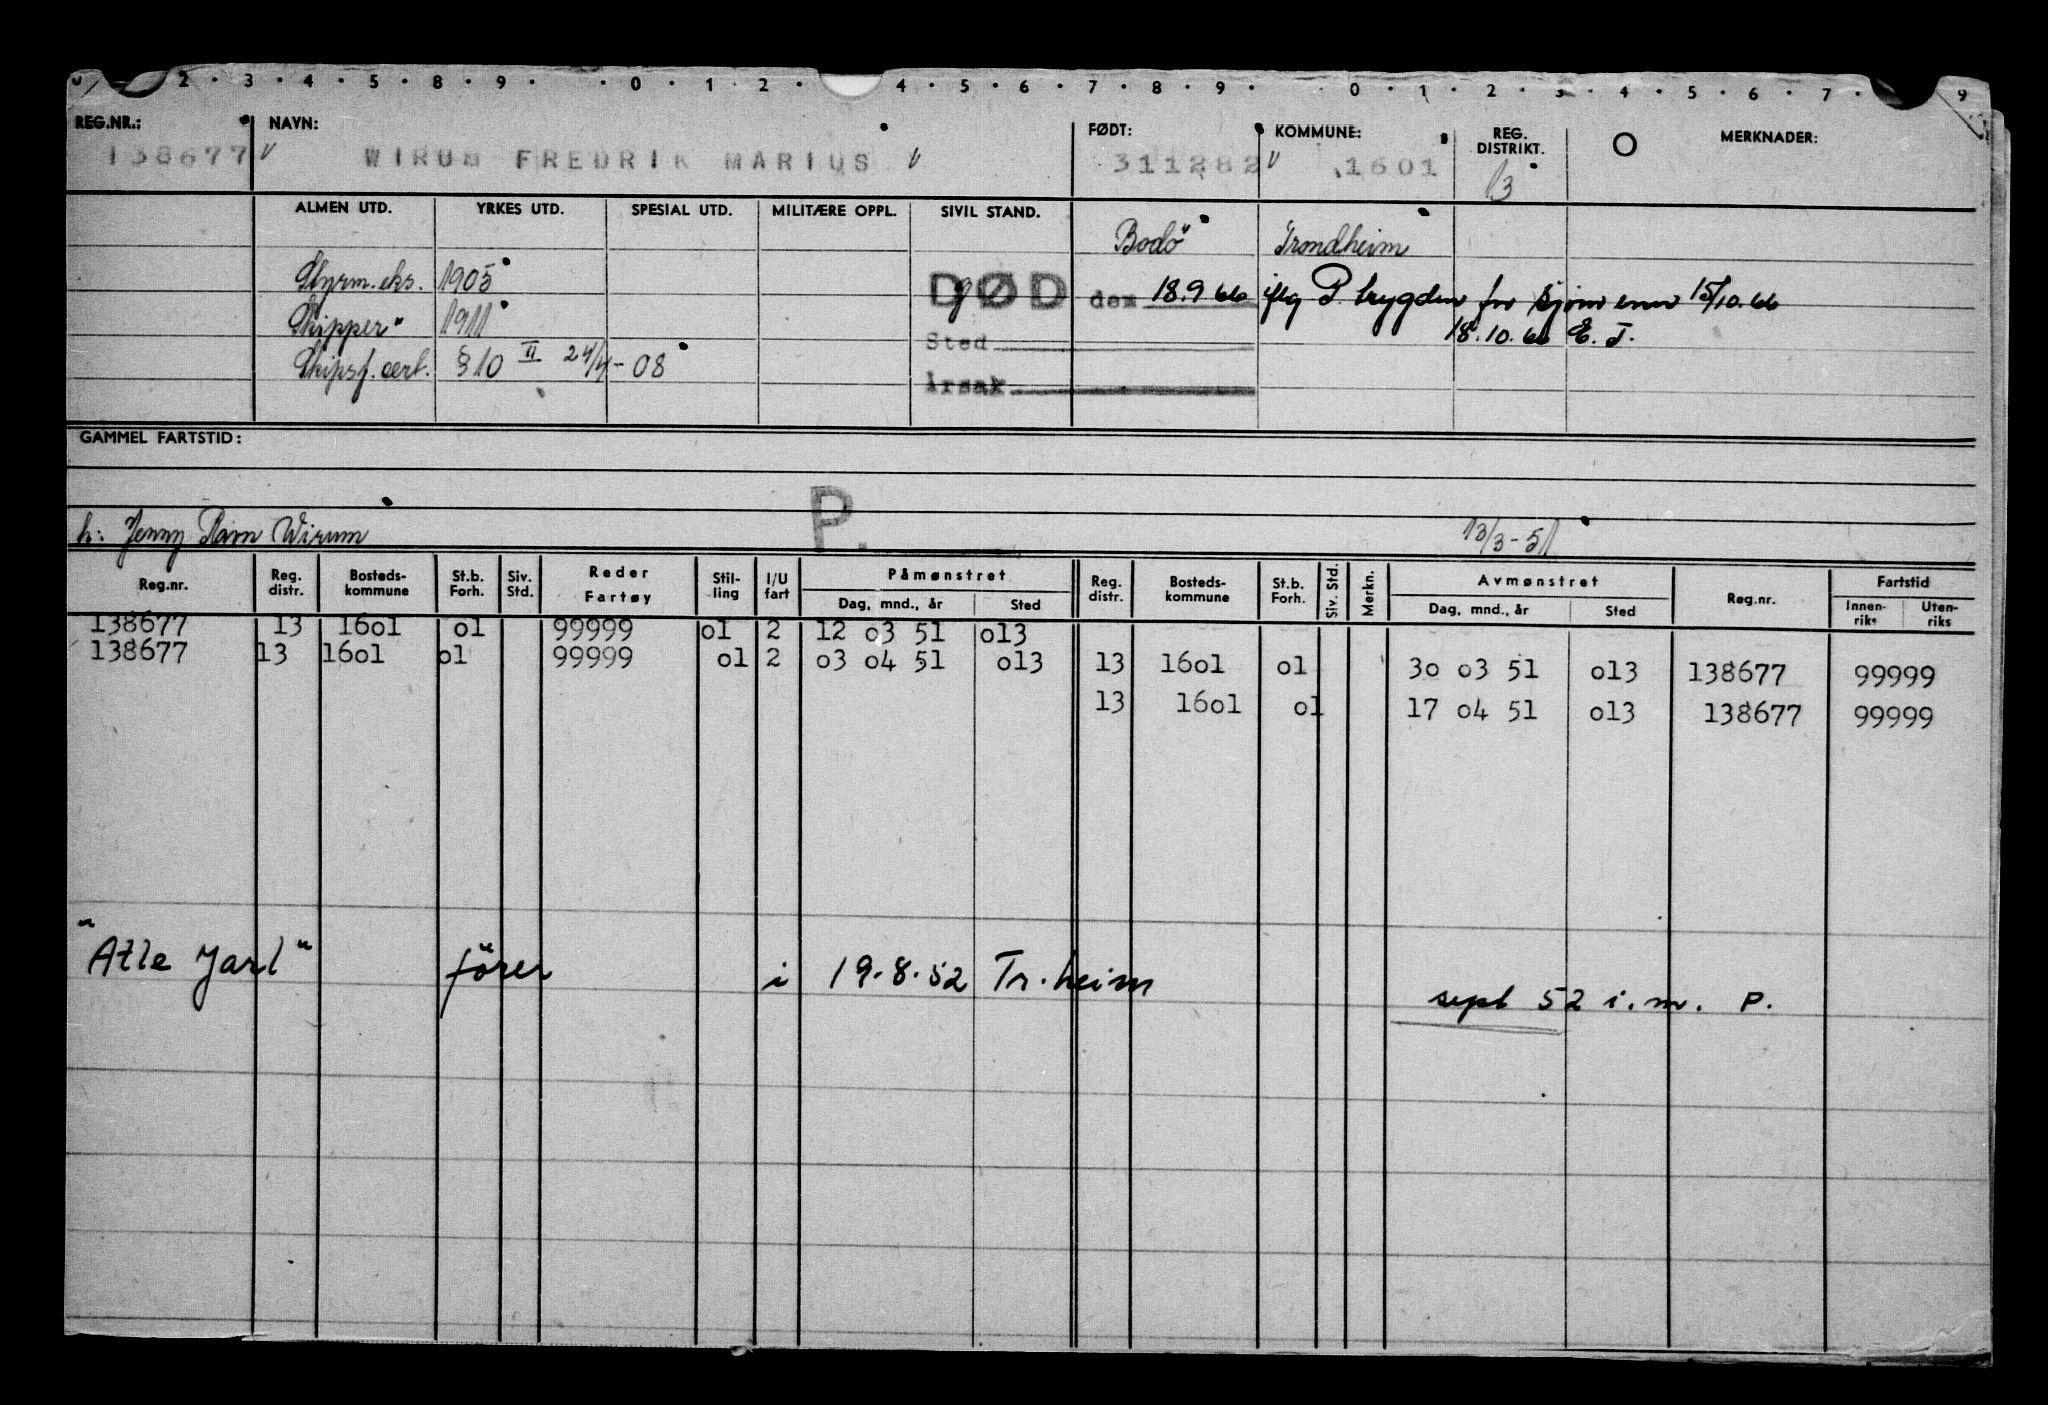 2 · 3 · 4 · 5 · 8 · 9 · 0 · 1 · 2 · 4 · 5 · 6 · 7 · 8 · 9 · 0 · 1 · 2 · 3 · 4 · 5 · 6 · 7 · 9
REG.NR.: NAVN: FØDT: KOMMUNE: REG. DISTRIKT. O MERKNADER:
138677 WIRUM FREDRIK MARIUS 311282 1601 13
ALMEN UTD. YRKES UTD. SPESIAL UTD. MILITÆRE OPPL. SIVIL STAND.
Bodö Trondheim
Styrm.eks. 1905 DØD den 18.9 66 iflg P. trygden for sjömenn 15/10.66
Skipper 1911 18.10.66 E. J.
Sted
Skipsf. cert. §10 II 24/4-08
Årsak
GAMMEL FARTSTID:
P.
h: Jenny Wirum 13/3-51
Reg.nr. Reg. distr. Bosteds- kommune St.b. Forh. Siv. Std. Reder Fartøy Stil- ling I/U fart Påmønstret Dag, mnd., år Sted Reg. distr. Bosteds- kommune St.b. Forh. Siv. Std. Merkn. Avmønstret Dag, mnd., år Sted Reg.nr. Fartstid Innen- riks Uten- riks
138677 13 16o1 o1 99999 o1 2 12 o3 51 o13
138677 13 16o1 o1 99999 o1 2 o3 o4 51 o13 13 16o1 o1 3o o3 51 o13 138677 99999
13 16o1 o1 17 o4 51 o13 138677 99999
"Atle Jarl" förer i 19.8.52 Tr.heim
sept 52 i.m. P.